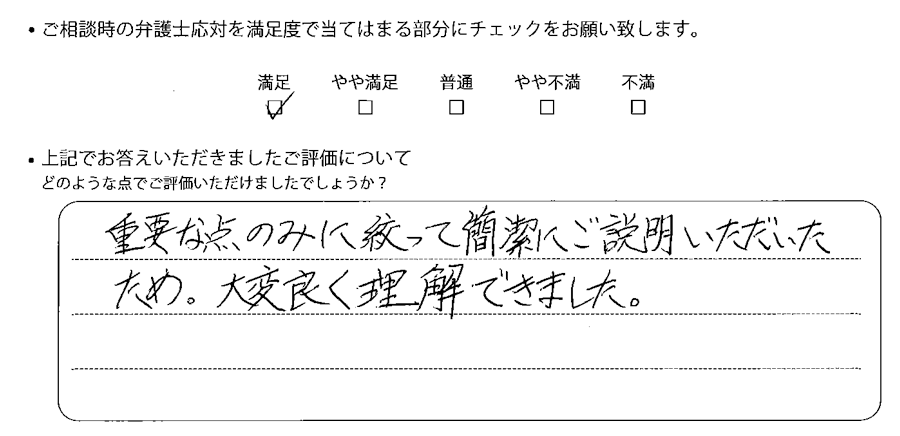 • ご相談時の弁護士応対を満足度で当てはまる部分にチェックをお願い致します。
満足 やや満足 普通 やや不満 不満
☑ □ □ □ □
• 上記でお答えいただきましたご評価について
どのような点でご評価いただけましたでしょうか？
重要な点のみに絞って簡潔にご説明いただいた
ため。大変良く理解できました。